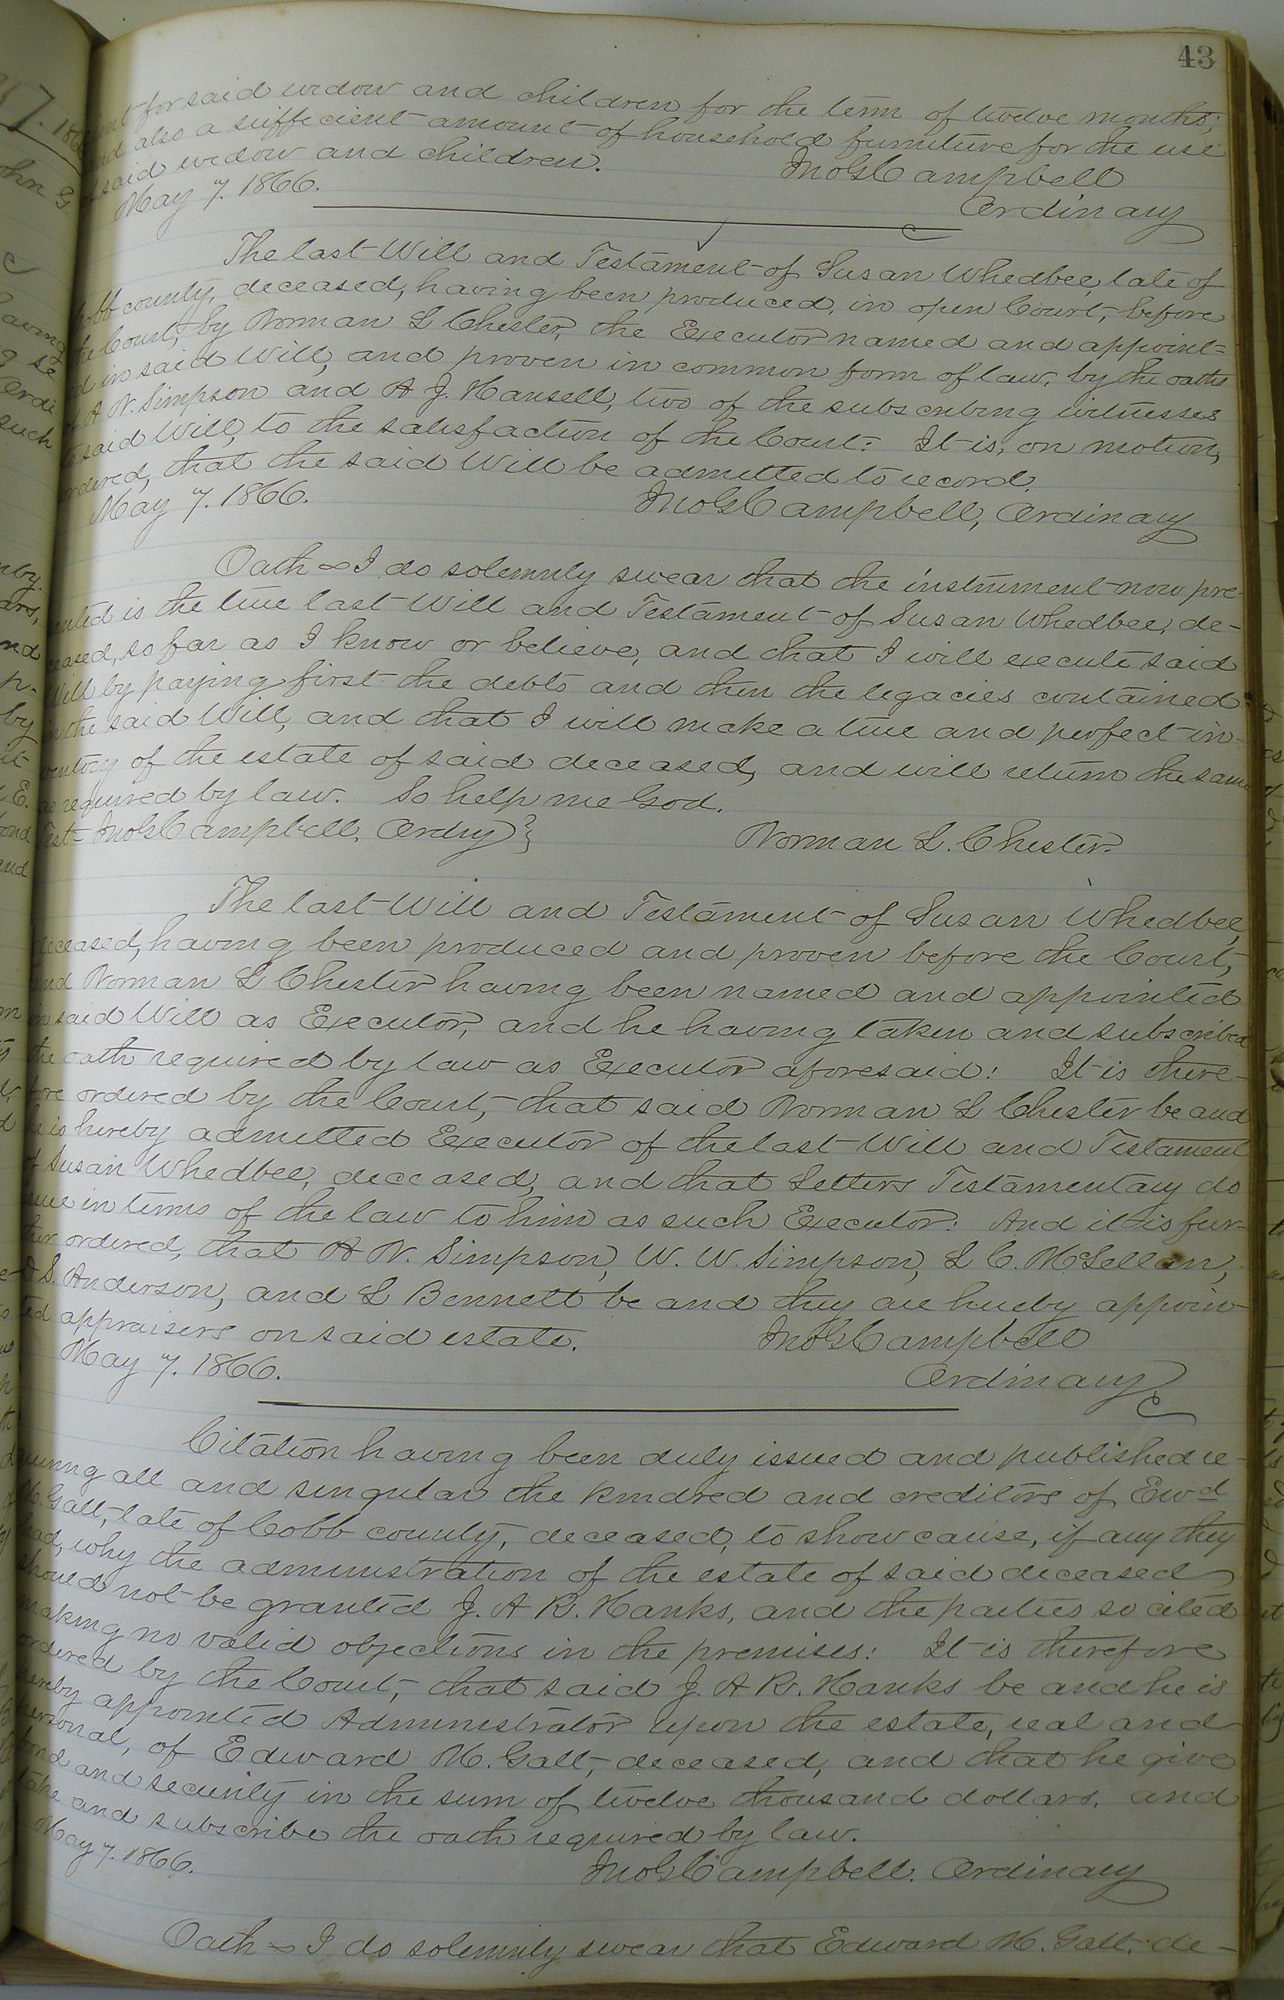 43
for said widow and children for the term of twelve months;
and also a sufficient amount of household furniture for the use
said widow and children. Jno G Campbell
May 7. 1866. Ordinary
The last Will and Testament of Susan Whedbee, late of
Cobb county, deceased, having been produced, in open Court, before
the Court, by Norman L Chester, the Executor named and appoint=
ed in said Will, and proven in common form of law, by the oaths
of A N. Simpson and A J. Hansell, two of the subscribing witnesses
to said Will, to the satisfaction of the Court: It is, on motion,
ordered, that the said Will be admitted to record.
May 7. 1866. Jno G Campbell, Ordinary
Oath ~ I do solemnly swear that the instrument now pre-
sented is the true last Will and Testament of Susan Whedbee, de-
ceased, so far as I know or believe, and that I will execute said
Will by paying first the debts and then the legacies contained
in the said Will, and that I will make a true and perfect in-
ventory of the estate of said deceased, and will return the same
as required by law. So help me God.
Jno G Campbell, Ordry } Norman L. Chester.
The last Will and Testament of Susan Whedbee,
deceased, having been produced and proven before the Court,
and Norman L Chester having been named and appointed
in said Will as Executor, and he having taken and subscribed
the oath required by law as Executor aforesaid: It is there-
fore ordered by the Court, that said Norman L Chester be and
he is hereby admitted Executor of the last Will and Testament
of Susan Whedbee, deceased, and that Letters Testamentary do
issue in terms of the law to him as such Executor: And it is fur-
ther ordered, that A N. Simpson, W. W. Simpson, L C. McLellan,
S. Anderson, and L Bennett be and they are hereby appoin-
ted appraisers on said estate. Jno G Campbell
May 7. 1866. Ordinary
Citation having been duly issued and published re-
quiring all and singular the kindred and creditors of Ewd
M. Galt, late of Cobb county, deceased, to show cause, if any they
had, why the administration of the estate of said deceased
should not be granted J. A R. Hanks, and the parties so cited
making no valid objections in the premises: It is therefore
ordered by the Court, that said J. A R. Hanks be and he is
hereby appointed Administrator upon the estate, real and
personal, of Edward M. Galt, deceased, and that he give
bond and security in the sum of twelve thousand dollars, and
take and subscribe the oath required by law.
May 7. 1866. Jno G Campbell. Ordinary
Oath ~ I do solemnly swear that Edward M. Galt, de-